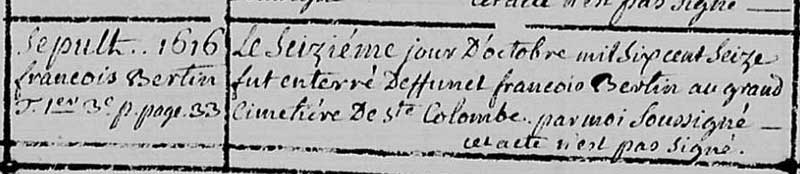 cet acte n'est pas signé
Sepult.. 1616
francois Bertin
T. 1er 3e p. page. 33
Le Seiziéme jour D'octobre mil Six cent Seize
fut enterré Deffunct francois Bertin au grand
Cimetiére De Ste Colombe. par moi Soussigné
cet acte n'est pas signé.